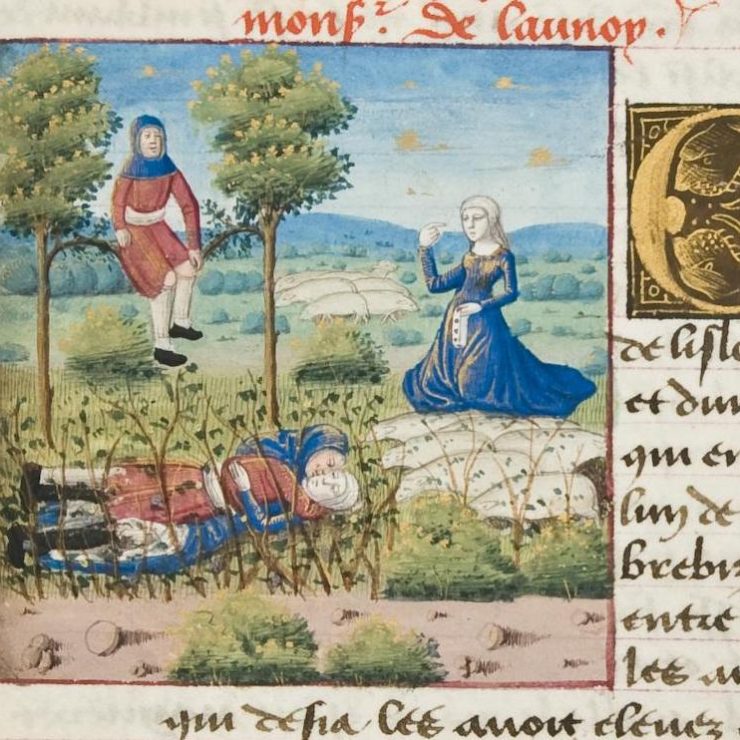 monsr. de launoy.
de lisl
et du
qui en
luy de
brebiz
entre
les au
qui desia les auoit eleuez